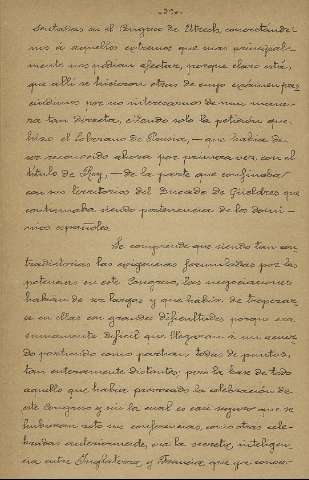 sentadas en el Congreso de Utrech, concretándo-
nos á aquellos extremos que mas principal-
mente nos podian afectar, porque claro está,
que allí se hicieron otras de cuyo exámen pres
cindimos por no interesarnos de una mane-
ra tan directa, citando solo la petición que
hizo el Soberano de Prusia, — que habia de
ser reconocido ahora por primera vez, con el
título de Rey, — de la parte que confinaba
con sus territorios del Ducado de Güeldres que
continuaba siendo pertenencia de los domi-
nios españoles.
Se comprende que siendo tan con
tradictorias las exigencias formuladas por las
potencias en este Congreso, las negociaciones
habian de ser largas y que habia de tropezar
se en ellas con grandes dificultades porque era
sumamente dificil que llegaran á un acuer
do partiendo como partian todas de puntos,
tan enteramente distintos; pero la base de todo
aquello que habia provocado la celebración de
este Congreso y sin la cual es casi seguro que se
hubieran roto sus conferencias, como otras cele-
bradas anteriormente, era la secreta inteligen-
cia entre Inglaterra y Francia, que ya conoce-